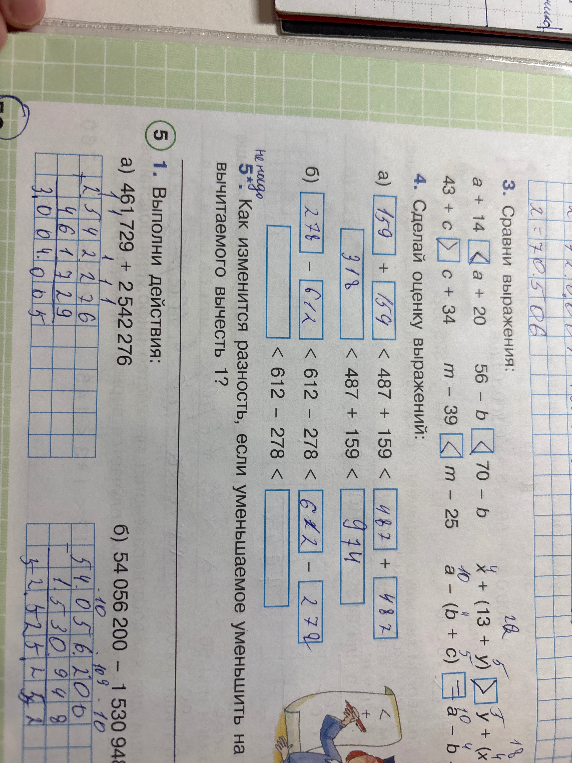 x = 70.506
3. Сравни выражения:
a + 14 < a + 20 56 − b < 70 − b x + (13 + y) > y + (x
43 + c > c + 34 m − 39 < m − 25 a − (b + c) = a − b
4. Сделай оценку выражений:
а) 159 + 159 < 487 + 159 < 487 + 487
318 < 487 + 159 < 974
б) 278 − 612 < 612 − 278 < 612 − 278
< 612 − 278 <
не надо
5*. Как изменится разность, если уменьшаемое уменьшить на
вычитаемого вычесть 1?
5 1. Выполни действия:
а) 461 729 + 2 542 276 б) 54 056 200 − 1 530 948
+ 2542276
461729
3.004.005
− 54.056.200
1530948
52.525.252